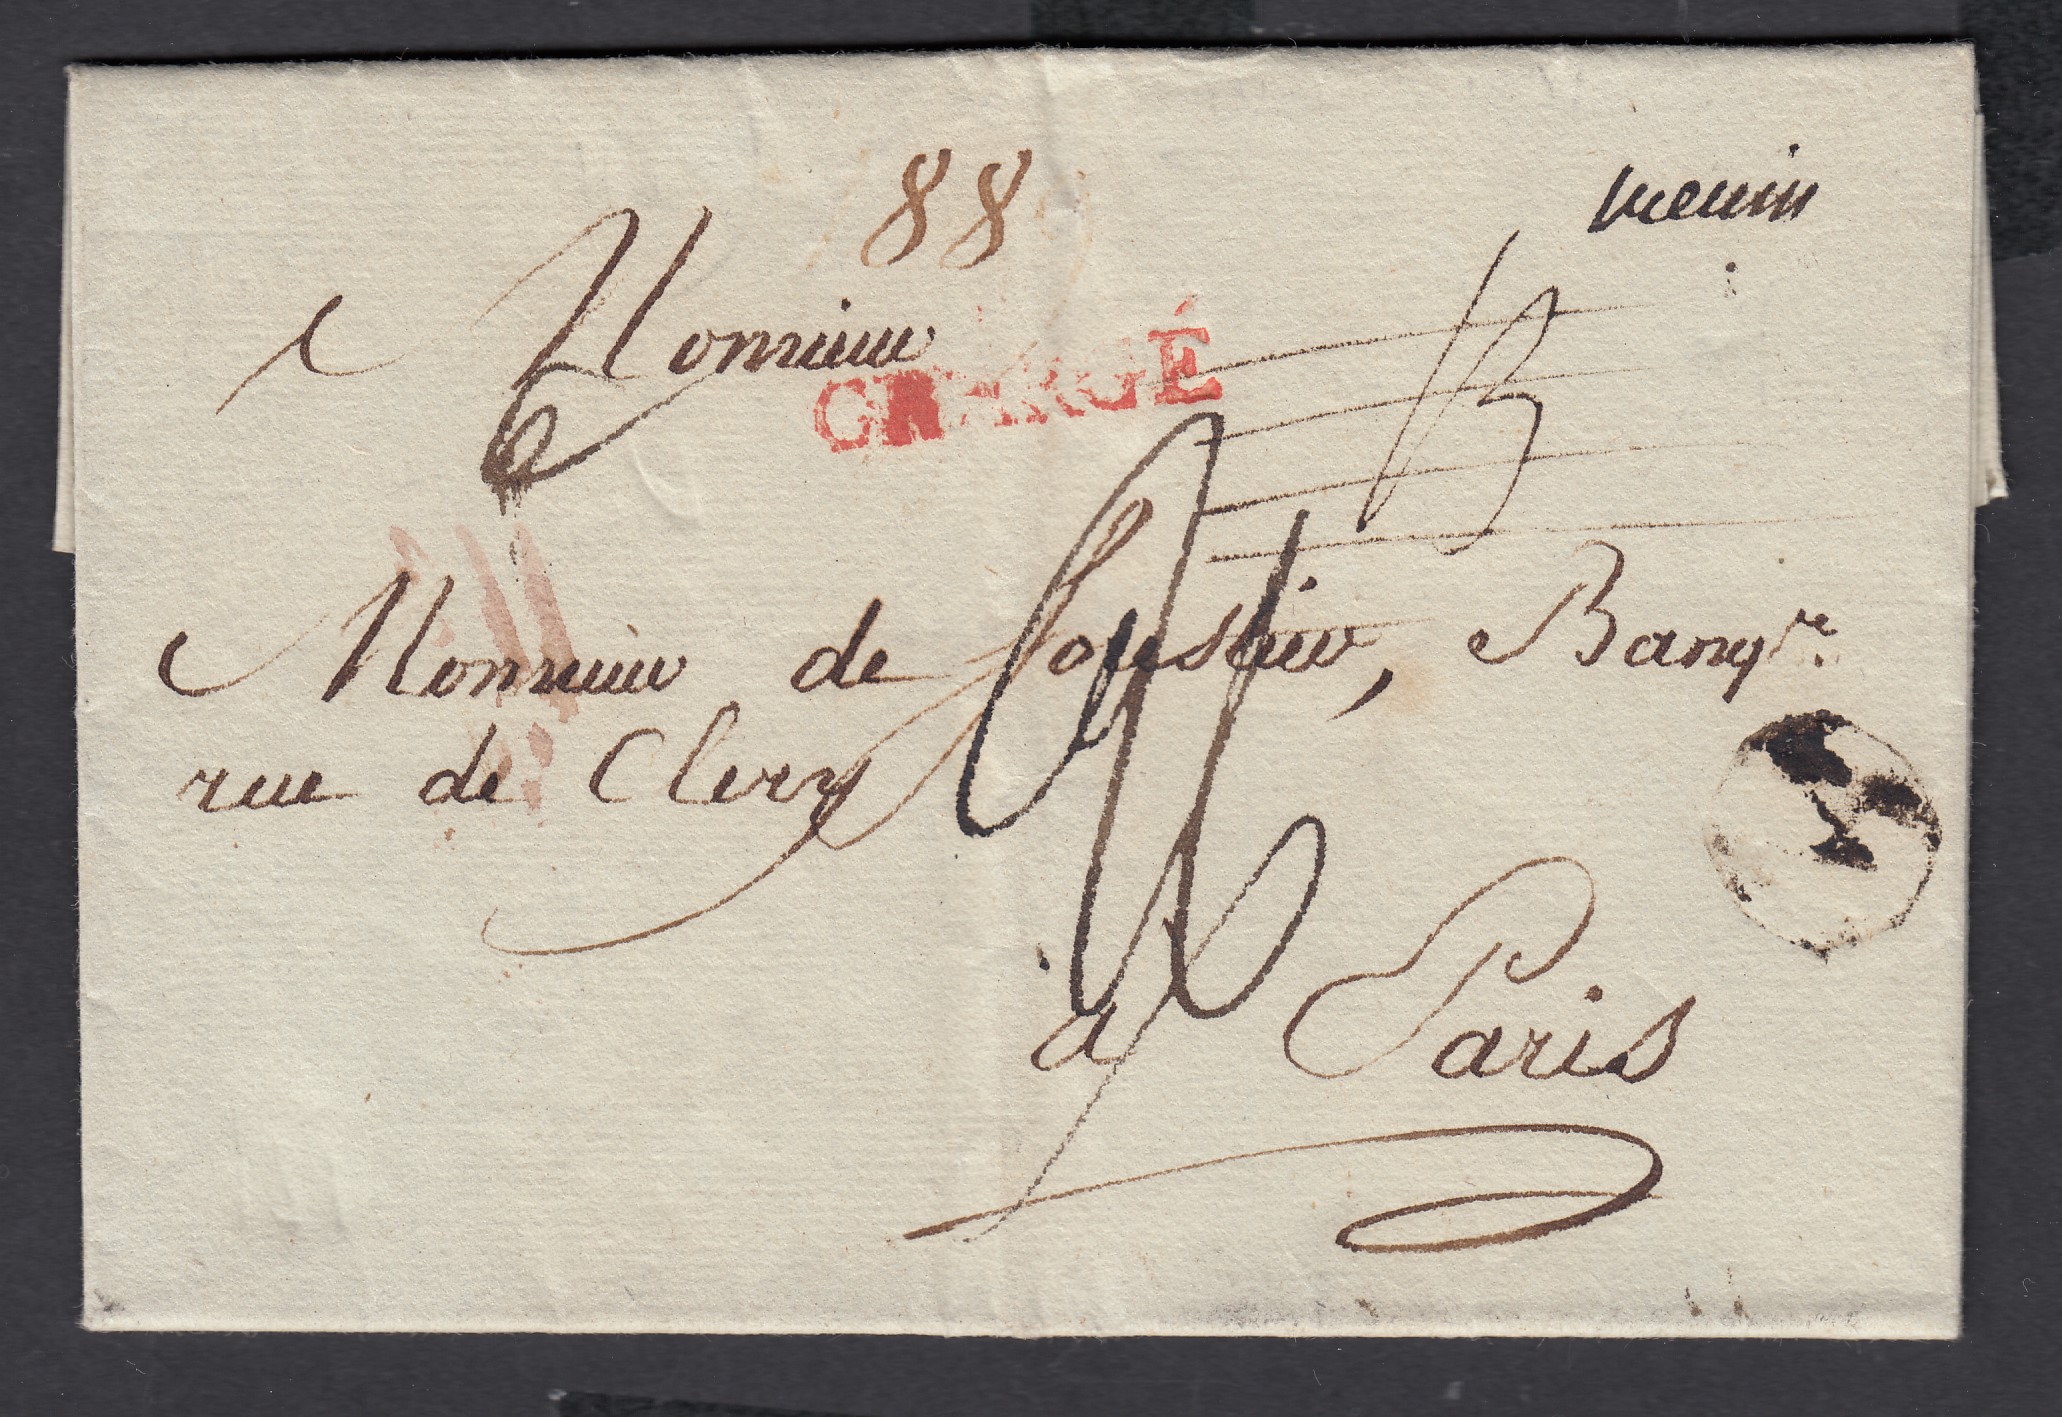 88
menin
Monsieur
CHARGÉ
13
Monsieur de Banqre
rue de Clery
à Paris